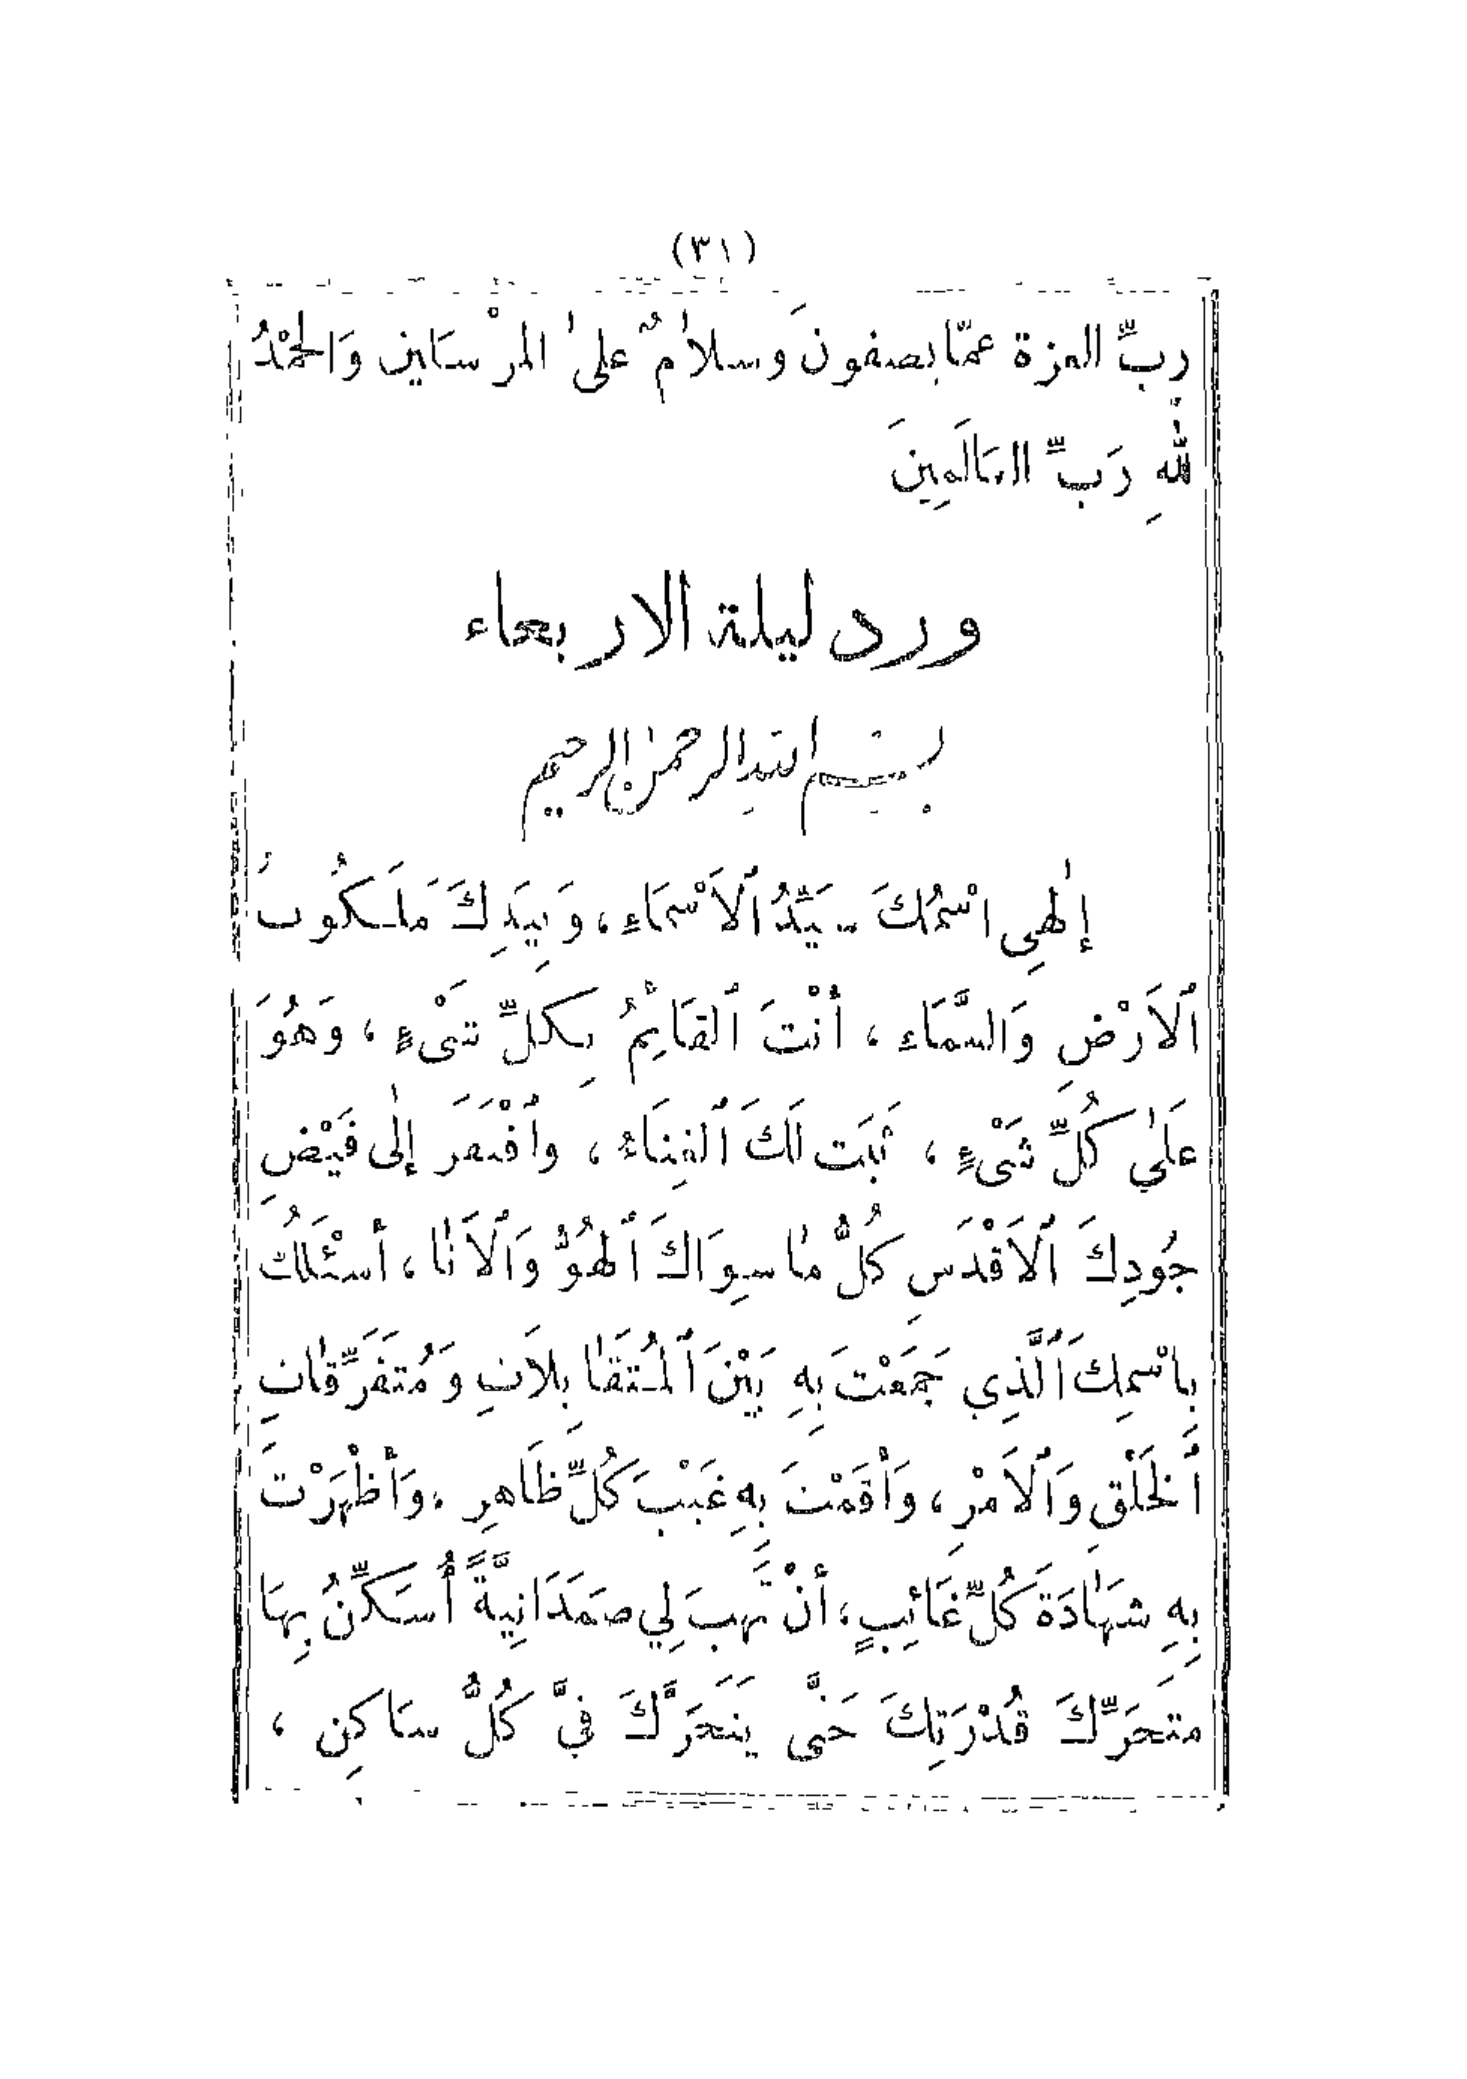 (٣١)
ربِّ العزة عمّا يصفونَ وسلاٰمٌ علىٰ المرْسَلين وَالحَمْدُ
لِلّٰهِ رَبِّ العَالَمِينَ
ورد ليلة الاربعاء
بسم الله الرحمن الرحيم
إلٰهِي اسْمُكَ سَيِّدُ ٱلاَسْمَاءِ، وَبِيَدِكَ مَلَكُوتُ
ٱلاَرْضِ وَالسَّمَاءِ، أَنْتَ ٱلقَائِمُ بِكلِّ شَىْءٍ، وَهُوَ
عَلَىٰ كُلِّ شَىْءٍ، ثَبَتَ لَكَ ٱلغِنَاءُ، وٱفْتَقَرَ إلٰى فَيْضِ
جُودِكَ ٱلاَقْدَسِ كُلُّ مٰا سِوَاكَ ٱلهُوُّ وَٱلاَنٰا، أَسْئَلُكَ
بِاسْمِكَ ٱلَّذِي جَمَعْتَ بِهِ بَيْنَ ٱلمُتَقَٰابِلاَتِ وَمُتَفَرِّقَاتِ
ٱلخَلْقِ وَٱلاَمْرِ، وَأَقَمْتَ بِهِ غَيْبَ كُلِّ ظَاهِرٍ، وَأَظْهَرْتَ
بِهِ شَهَٰادَةَ كُلِّ غَائِبٍ، أَنْ تَهَبَ لِي صَمَدَانِيَّةً أُسَكِّنُ بِهَا
متَحَرِّكَ قُدْرَتِكَ حَتَّى يَتَحَرَّكَ فِيَّ كُلُّ سَاكِنٍ،